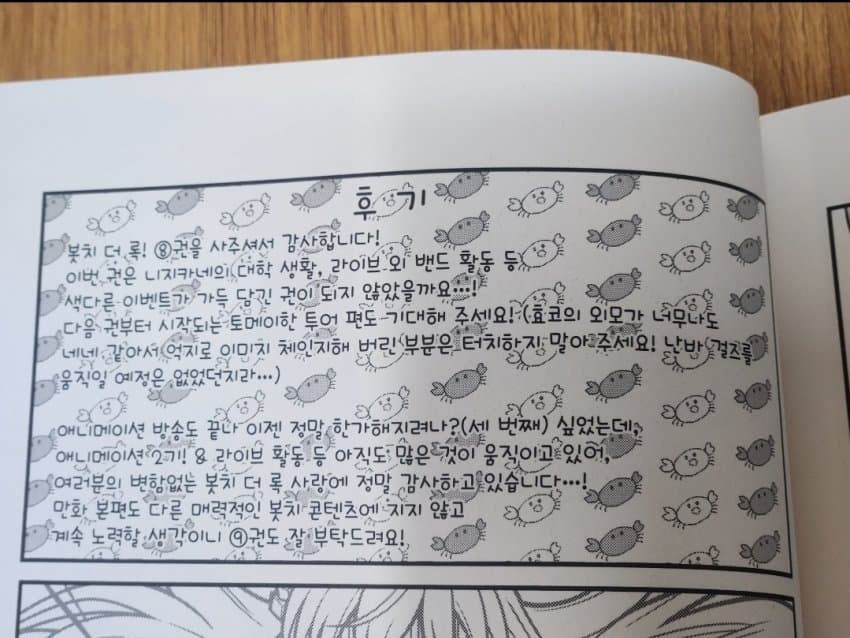 후기
봇치 더 록! ⑧권을 사주셔서 감사합니다!
이번 권은 니지카네의 대학 생활, 라이브 외 밴드 활동 등
색다른 이벤트가 가득 담긴 권이 되지 않았을까요…!
다음 권부터 시작되는 토메이한 투어 편도 기대해 주세요! (효코의 외모가 너무나도
네네 같아서 억지로 이미지 체인지해 버린 부분은 터치하지 말아 주세요! 난바 걸즈를
움직일 예정은 없었던지라…)
애니메이션 방송도 끝나 이젠 정말 한가해지려나?(세 번째) 싶었는데,
애니메이션 2기! & 라이브 활동 등 아직도 많은 것이 움직이고 있어,
여러분의 변함없는 봇치 더 록 사랑에 정말 감사하고 있습니다…!
만화 본편도 다른 매력적인 봇치 콘텐츠에 지지 않고
계속 노력할 생각이니 ⑨권도 잘 부탁드려요!